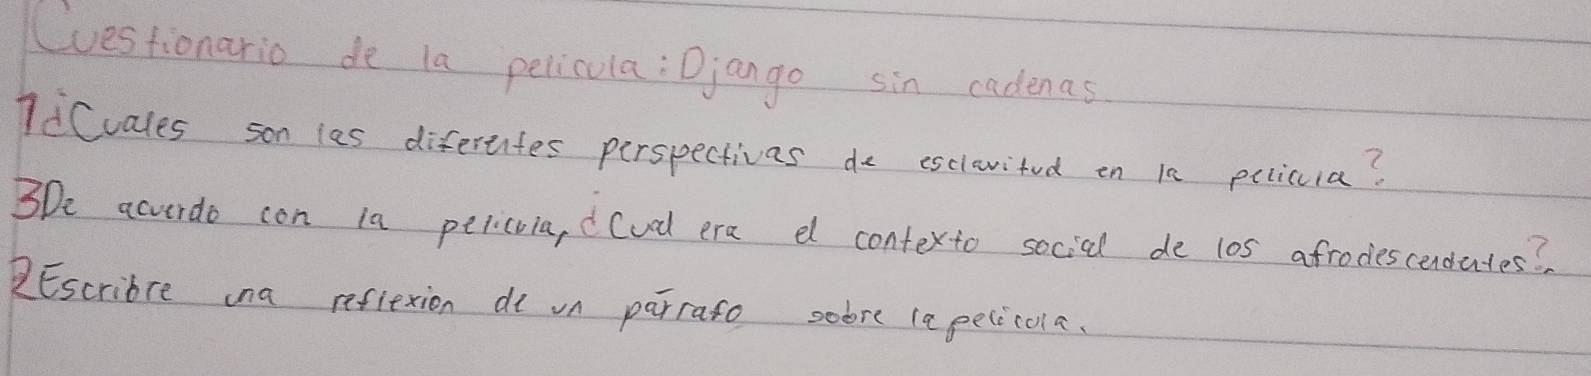 Cuestionario de la pelicula: Django sin cadenas.
1¿Cuales son las diferentes perspectivas de esclavitud en la pelicula?
3De acuerdo con la pelicula, ¿Cual era el contexto social de los afrodescendentes?
2Escribre una reflexion de un párrafo sobre la pelicola.